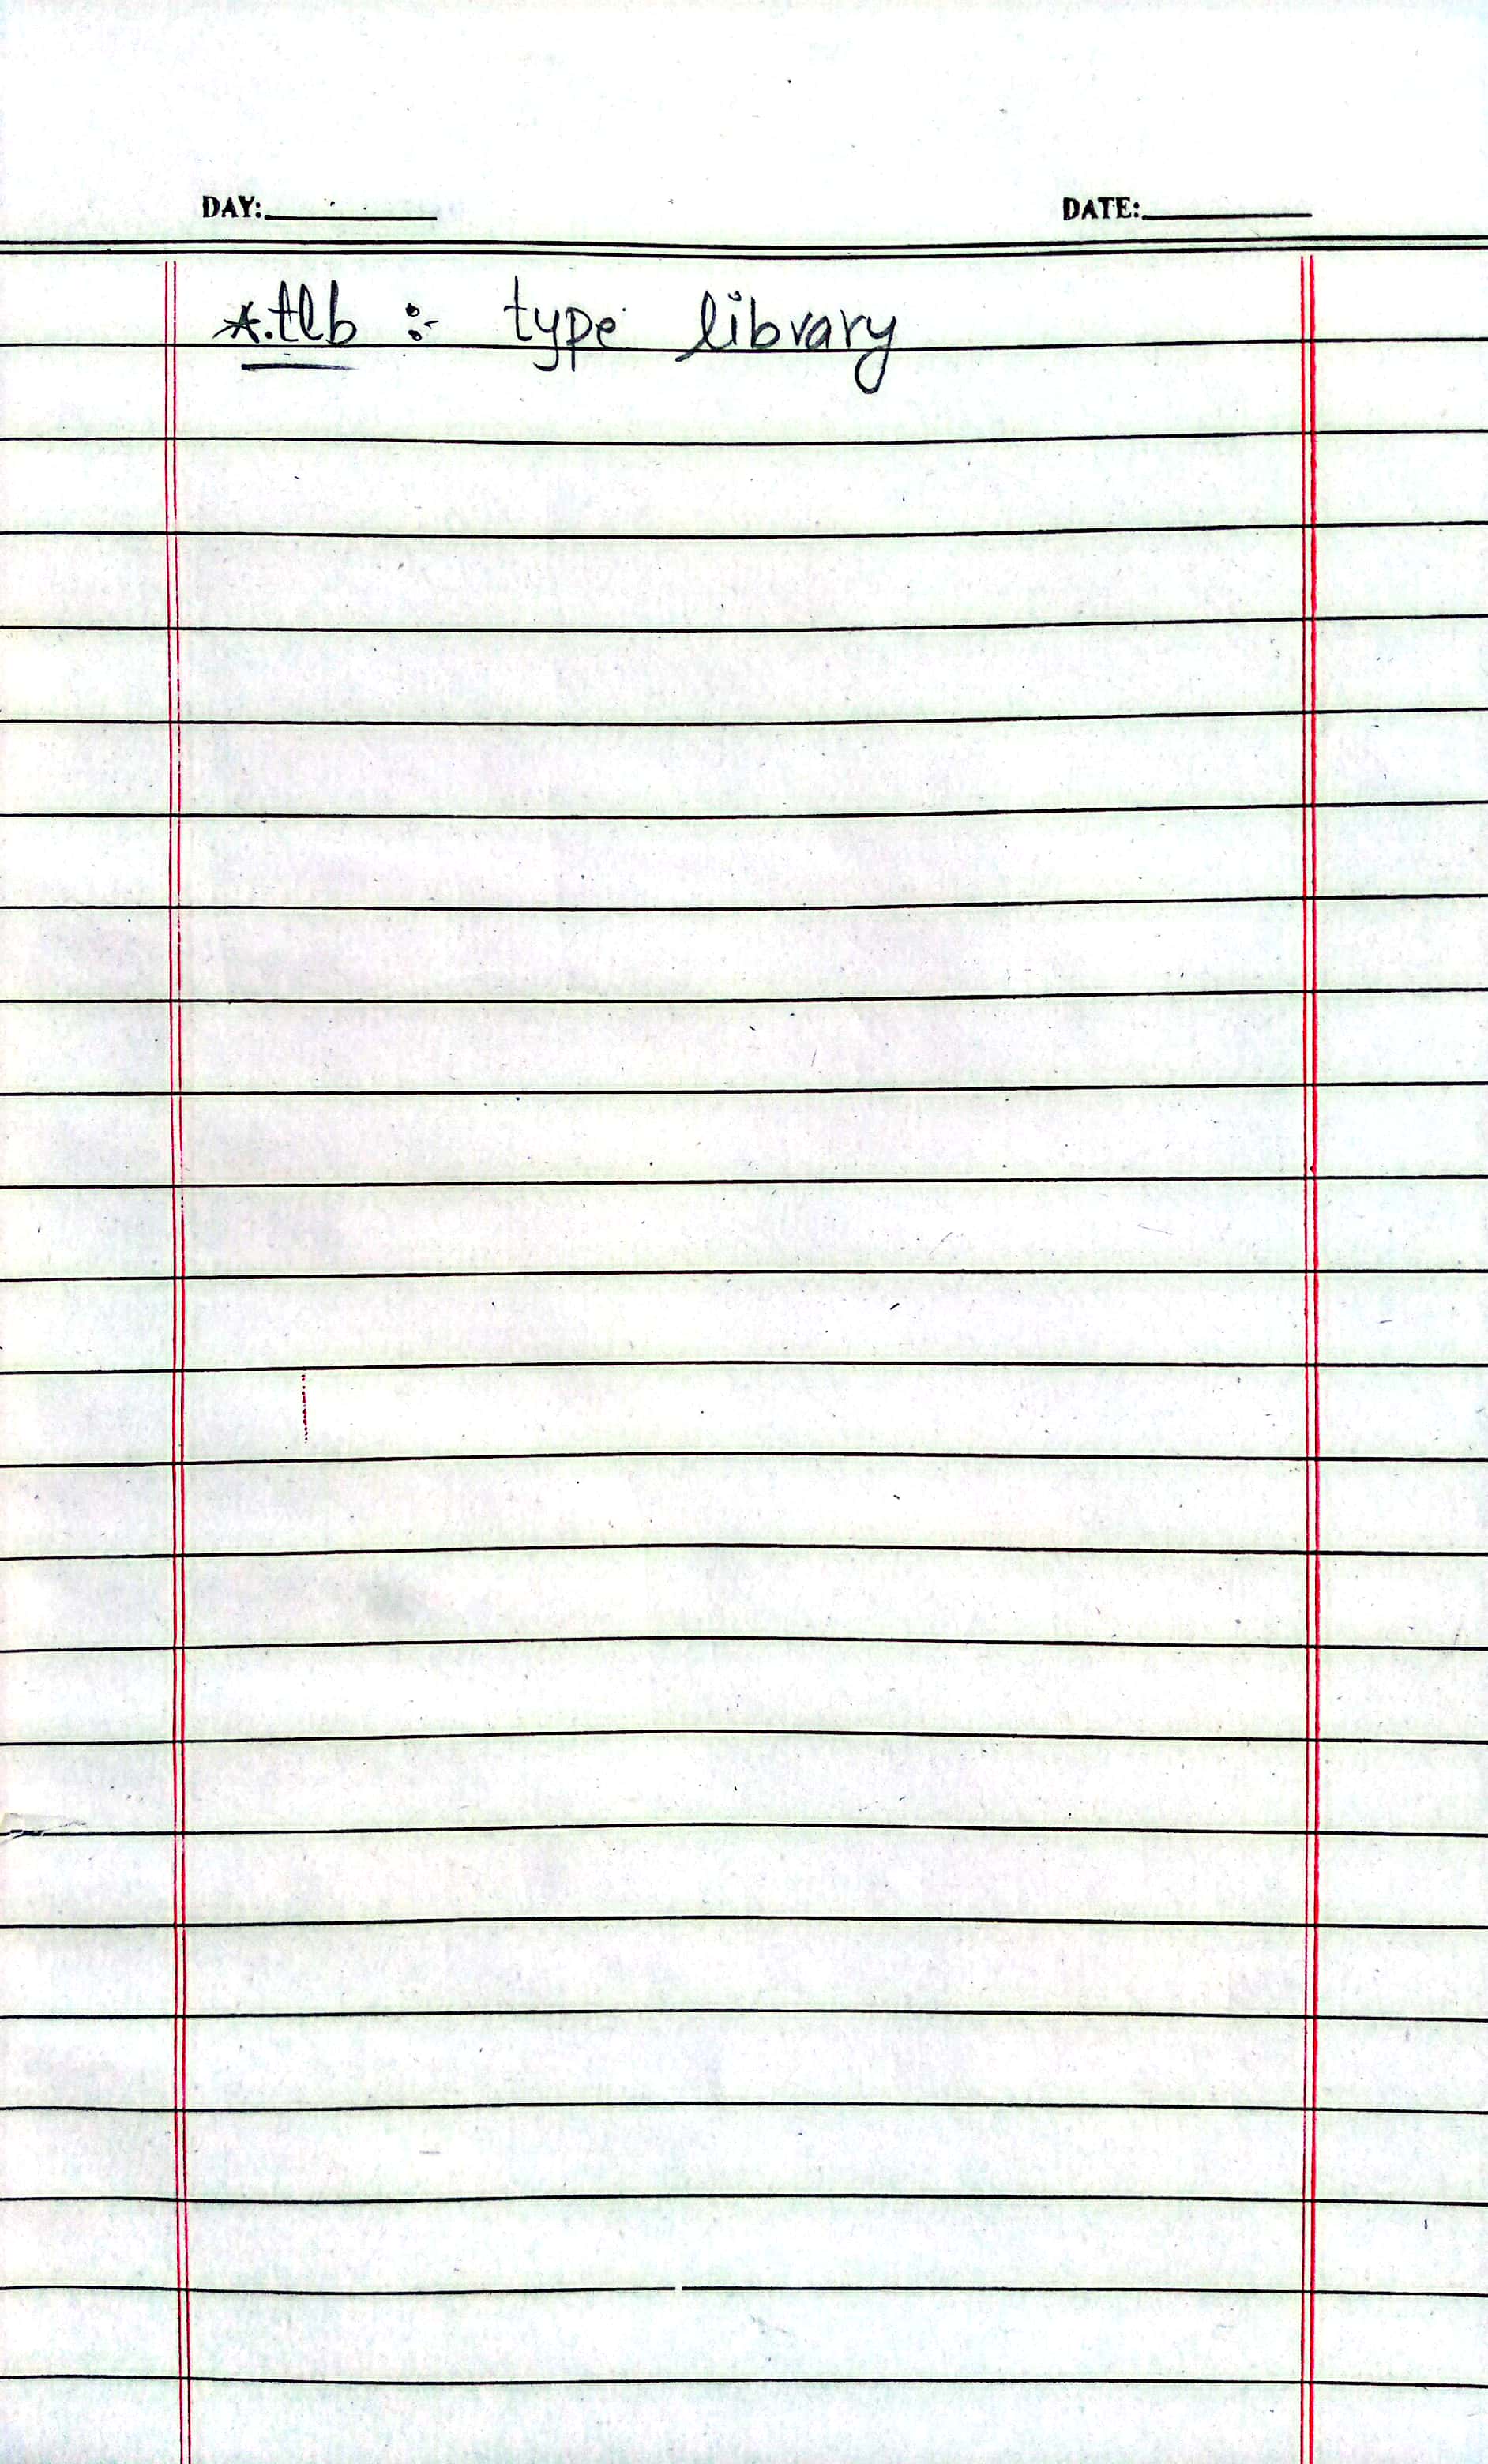 DAY: DATE:
*.tlb :- type library